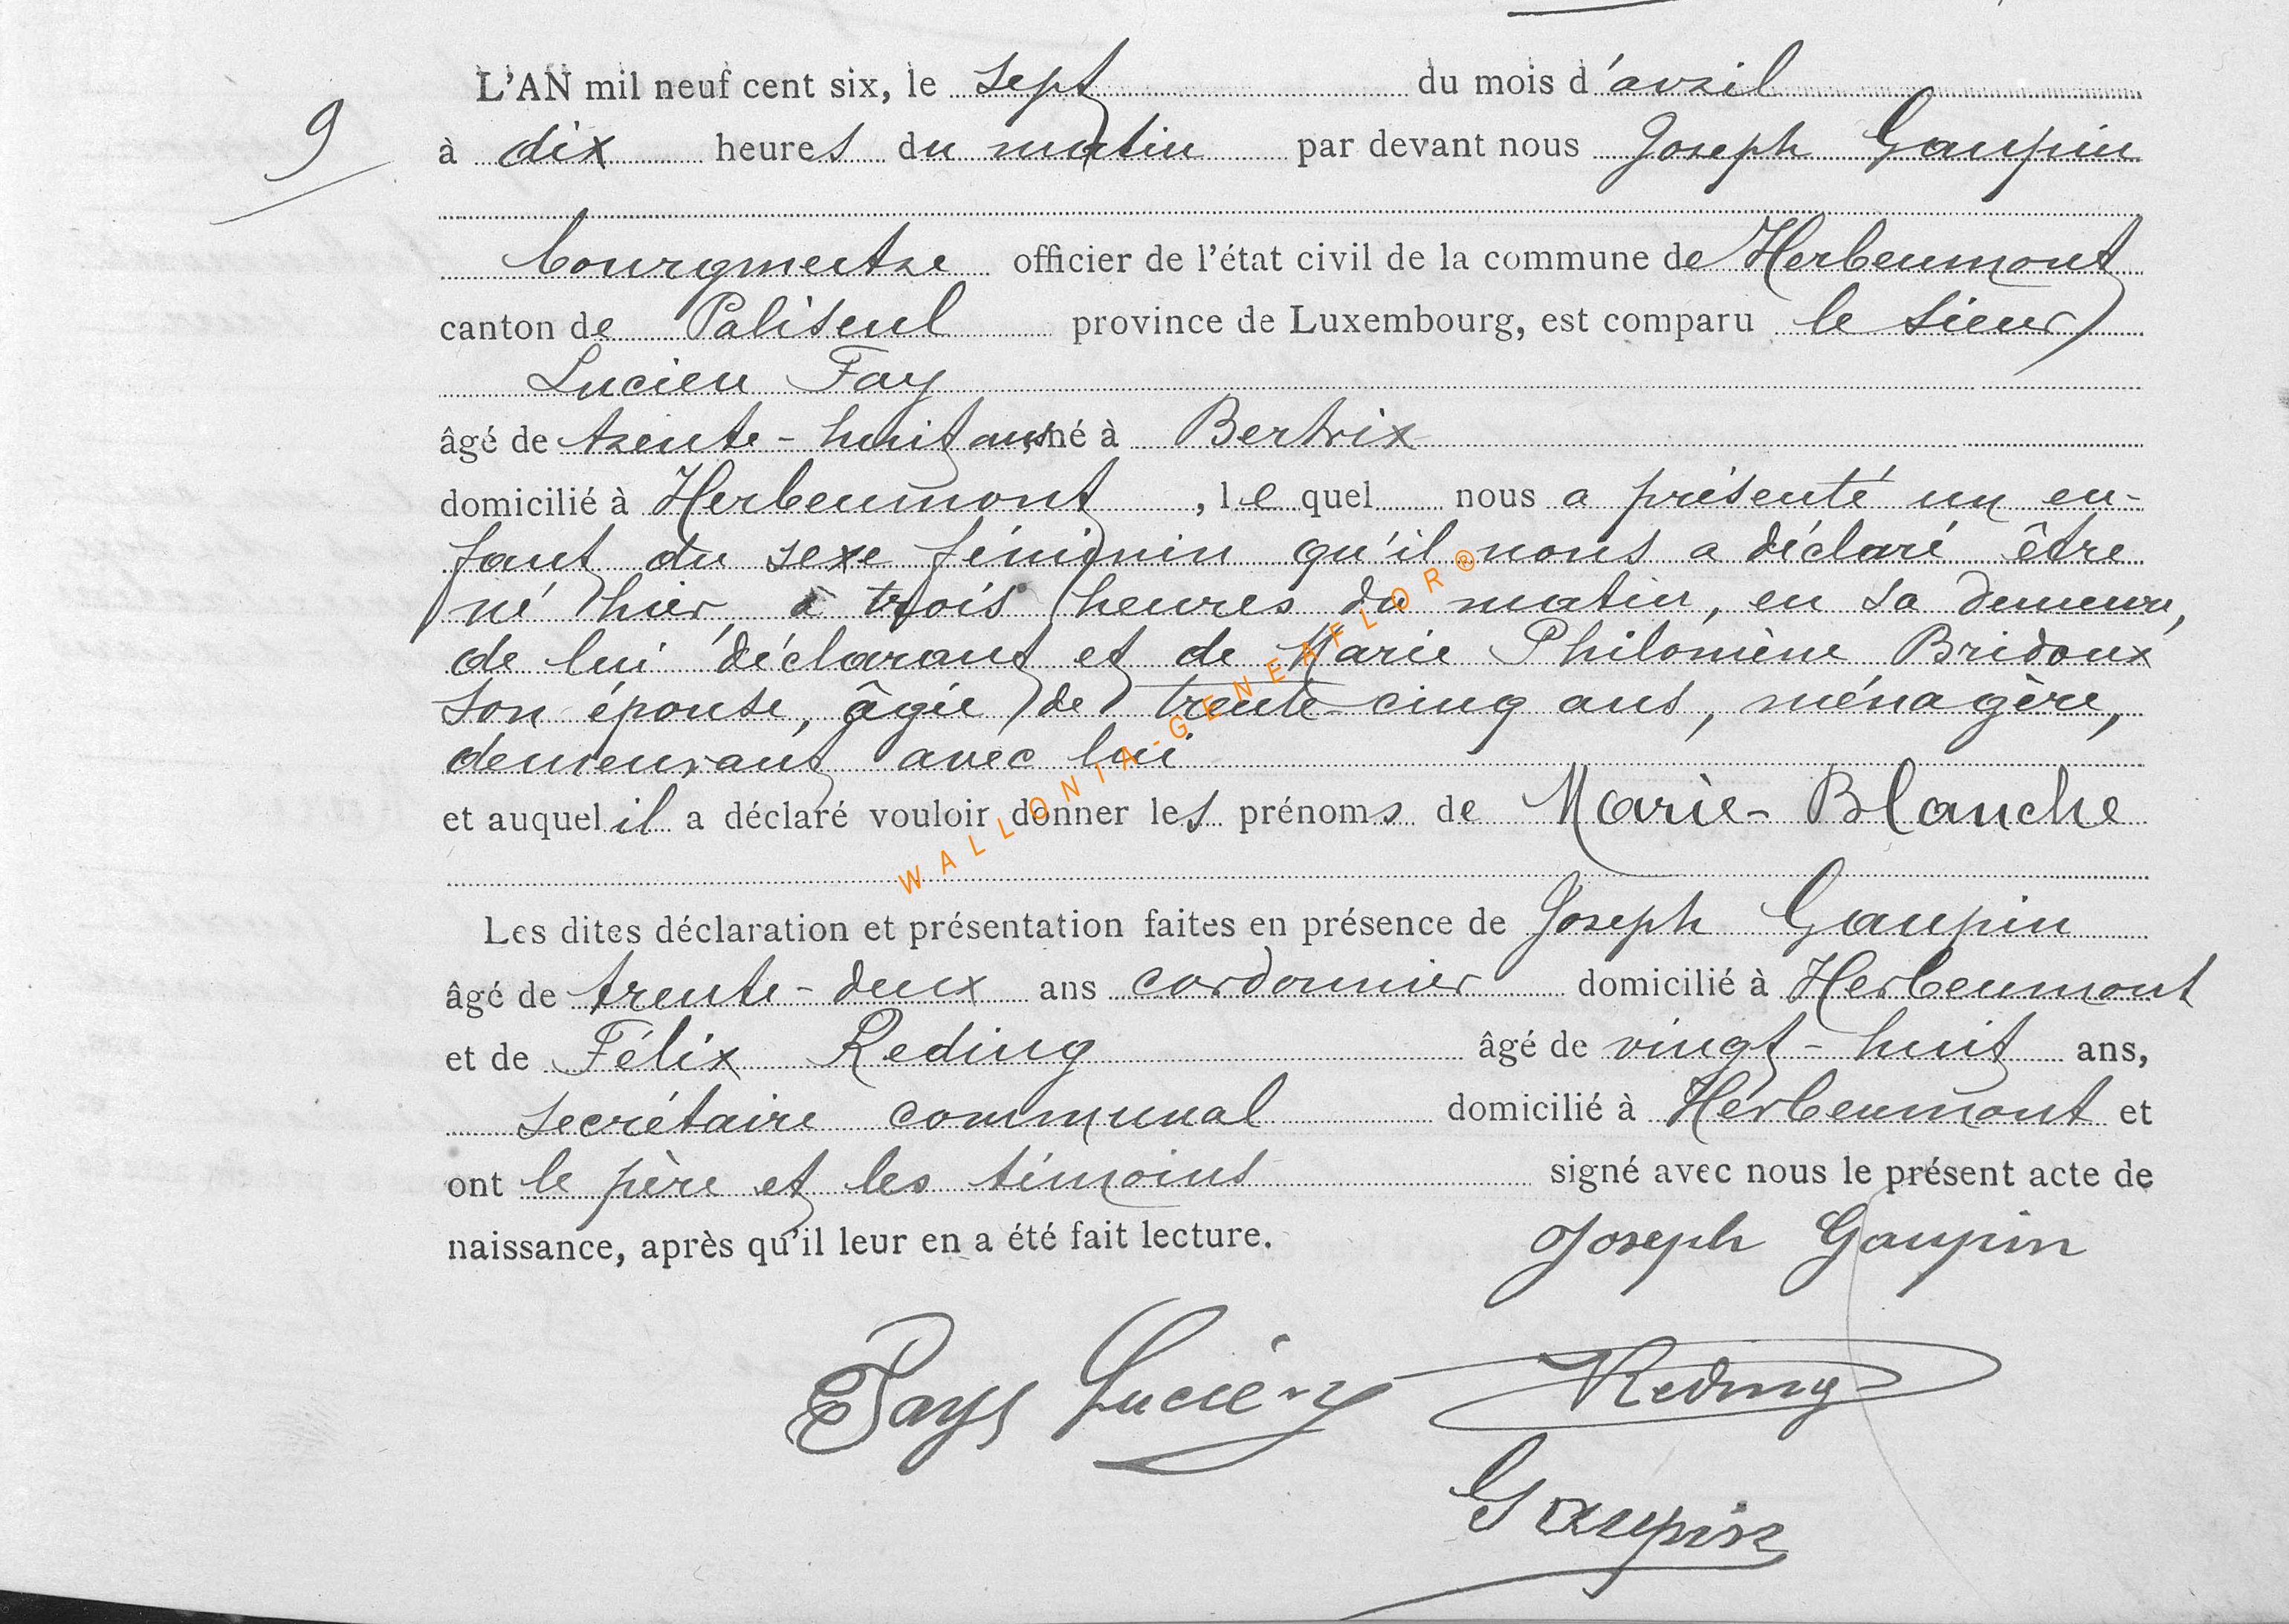 L'AN mil neuf cent six, le sept du mois d'avril
9
à dix heures du matin par devant nous Joseph Gaupin
bourgmestre officier de l'état civil de la commune de Herbeumont
canton de Paliseul province de Luxembourg, est comparu le sieur
Lucien Fay
âgé de trente-huit ans, né à Bertrix
domicilié à Herbeumont, lequel nous a présenté un en-
fant du sexe féminin qu'il nous a déclaré être
né hier, à trois heures du matin, en sa demeure,
de lui déclarant et de Marie Philomène Bridoux
son épouse, âgée de trente-cinq ans, ménagère,
demeurant avec lui
et auquel il a déclaré vouloir donner les prénoms de Marie-Blanche
Les dites déclaration et présentation faites en présence de Joseph Gaupin
âgé de trente-deux ans cordonnier domicilié à Herbeumont
et de Félix Reding âgé de vingt-huit ans,
secrétaire communal domicilié à Herbeumont et
ont le père et les témoins signé avec nous le présent acte de
naissance, après qu'il leur en a été fait lecture.
Joseph Gaupin
Fays Lucien Reding
Gaupin
WALLONIA-GENEAFLOR®